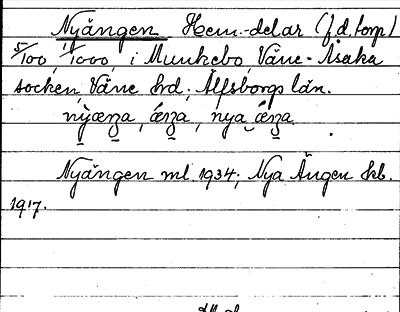 Nyängen Hem.-delar (f.d. torp)
5/100, 1/1000, i Munkebo, Väne-Åsaka
socken, Väne hrd, Älfsborgs län.
Nyängen ml 1934; Nya Ängen kb.
1917.